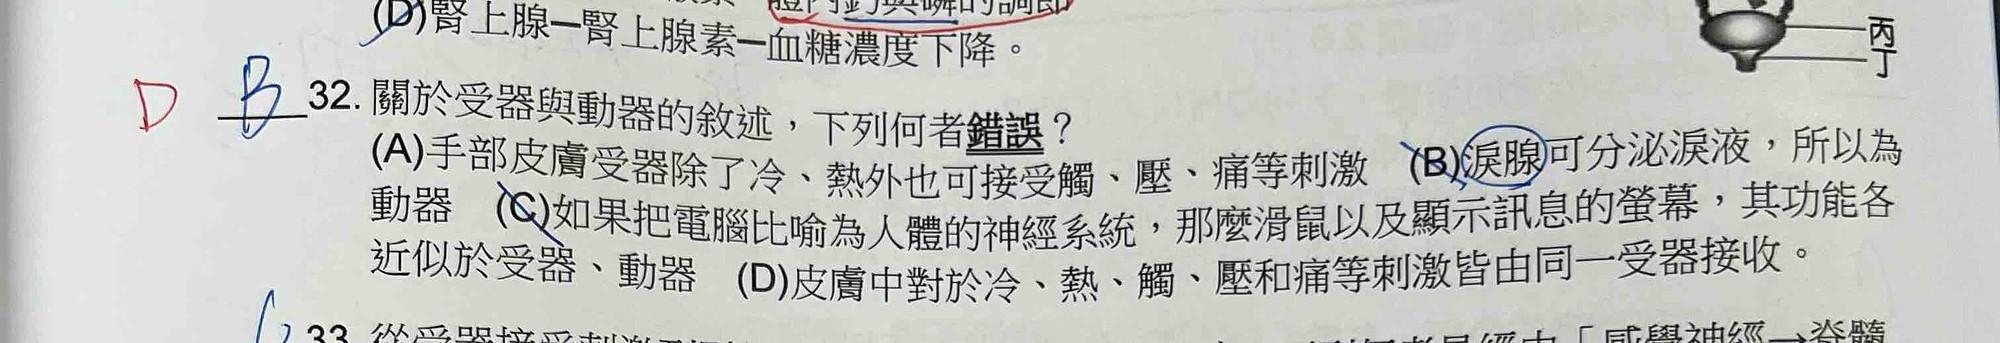 體內鈣與磷的調節
(D)腎上腺—腎上腺素—血糖濃度下降。
丙
丁
D B 32. 關於受器與動器的敘述，下列何者錯誤？
(A)手部皮膚受器除了冷、熱外也可接受觸、壓、痛等刺激 (B)淚腺可分泌淚液，所以為
動器 (C)如果把電腦比喻為人體的神經系統，那麼滑鼠以及顯示訊息的螢幕，其功能各
近似於受器、動器 (D)皮膚中對於冷、熱、觸、壓和痛等刺激皆由同一受器接收。
33. 從受器接受刺激
「感覺神經→脊髓